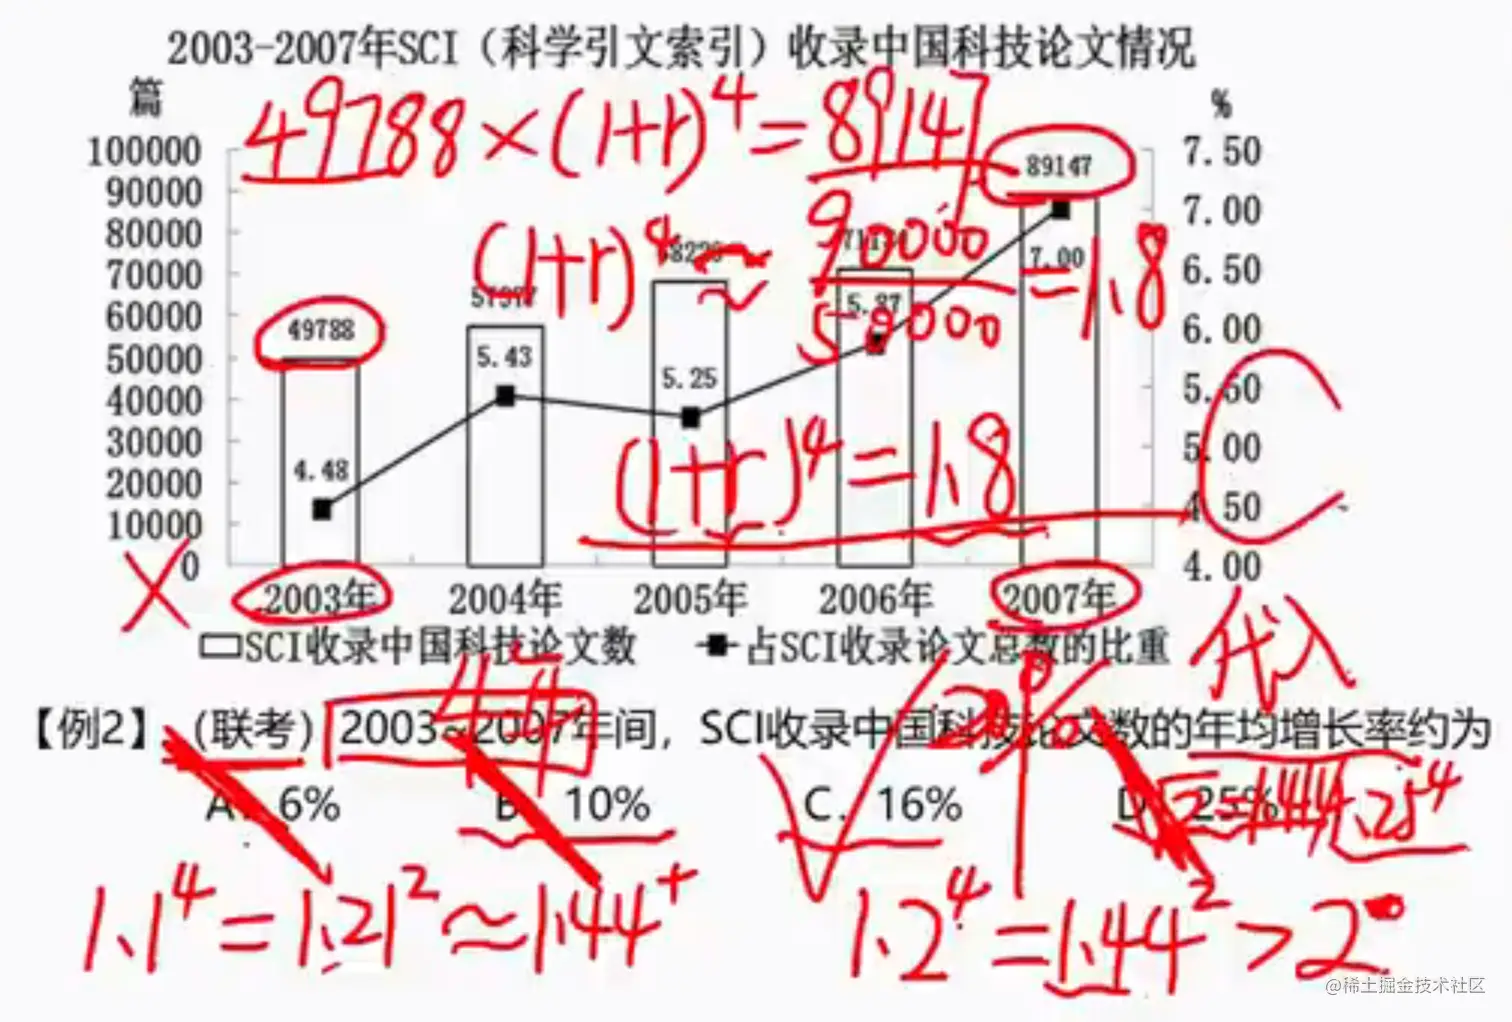 2003-2007年SCI（科学引文索引）收录中国科技论文情况
篇
%
49788×(1+r)^4=89147
100000
90000
80000
70000
60000
50000
40000
30000
20000
10000
0
7.50
7.00
6.50
6.00
5.50
5.00
4.50
4.00
49788
89147
4.48
5.43
5.25
5.87
7.00
(1+r)^4≈90000/50000=1.8
(1+r)^4=1.8
C
×
2003年
2004年
2005年
2006年
2007年
SCI收录中国科技论文数
占SCI收录论文总数的比重
代入
4.4
20%
【例2】（联考）2003~2007年间，SCI收录中国科技论文数的年均增长率约为
A. 6%
B. 10%
C. 16%
D. 25%
1.25^4
1.1^4=1.21^2≈1.44^+
1.2^4=1.44^2>2
@稀土掘金技术社区